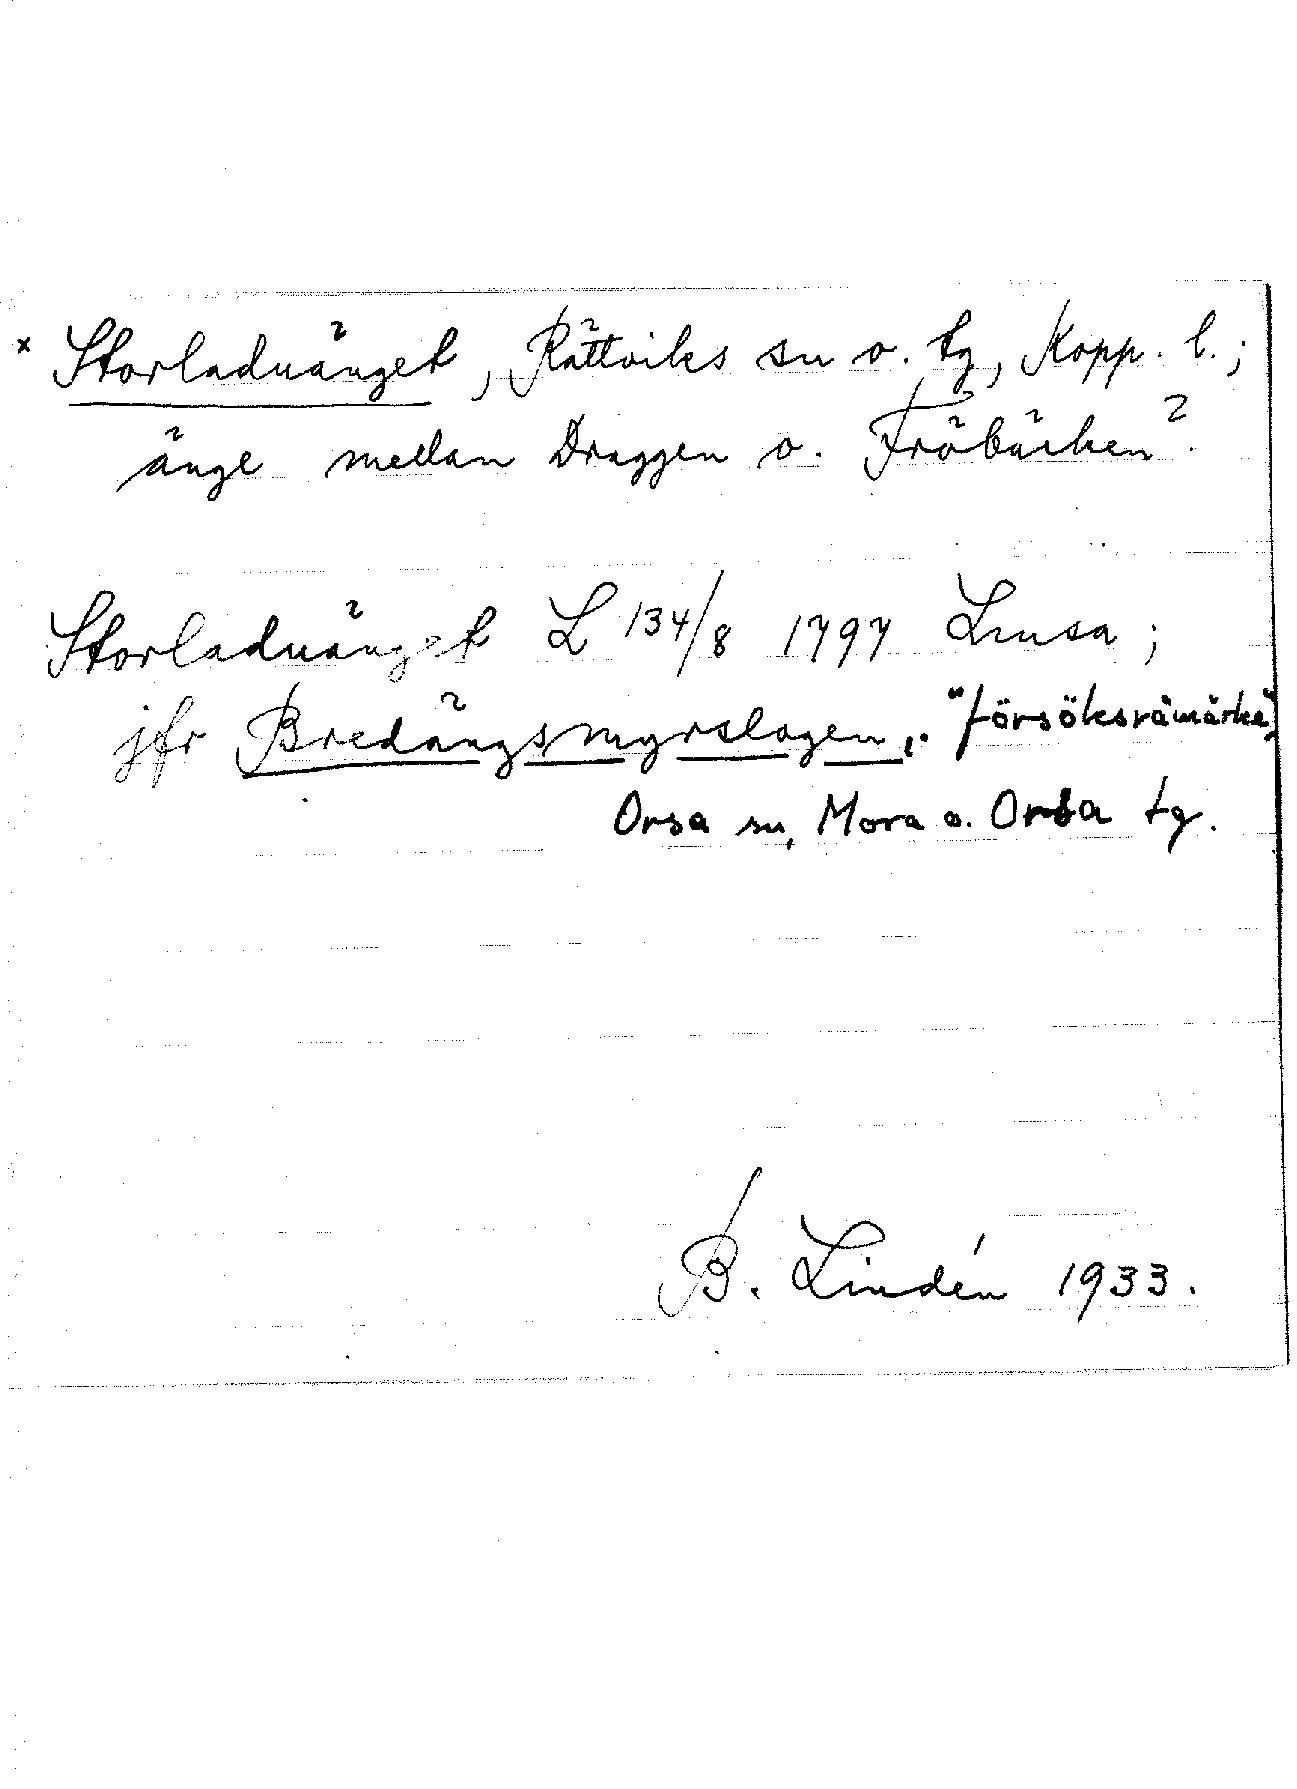 x Storladuänget, Rättviks sn o. tg, Kopp. l.;
änge mellan Draggen o. Fröbäcken?.
Storladuänget L 134/8 1797
jfr Bredängsmyrslogen, "försöksråmärke",
Orsa sn, Mora o. Orsa tg.
B. Lindén 1933.